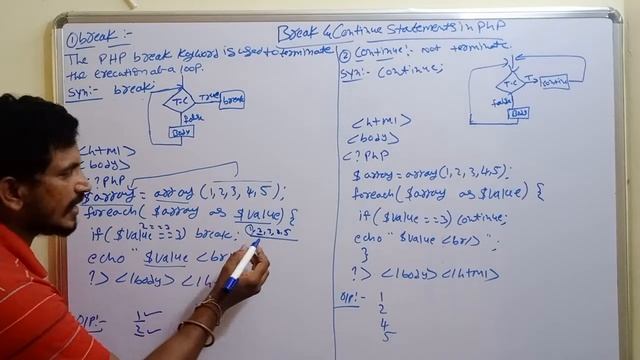 Break & Continue Statements in PHP
① break :-
The PHP break keyword is used to terminate
the execution of a loop.
Syn:- break;
T.C
True
break
false
Body
<html>
<body>
<?PHP
$array = array (1, 2, 3, 4, 5);
foreach ( $array as $value) {
2 === 3
if ( $value === 3) break;
1, 2, 3, 4, 5
echo " $value <br
?> </body> </h
O/P:- 1 ✓
2 ✓
② Continue:- not terminate.
Syn:- Continue;
T.C
T
continue
false
Body
<html>
<body>
<? PHP
$array = array (1, 2, 3, 4, 5);
foreach ( $array as $value) {
if ( $value === 3) continue;
echo " $value <br/> ";
}
?> </body> </html>
O/P:- 1
2
4
5